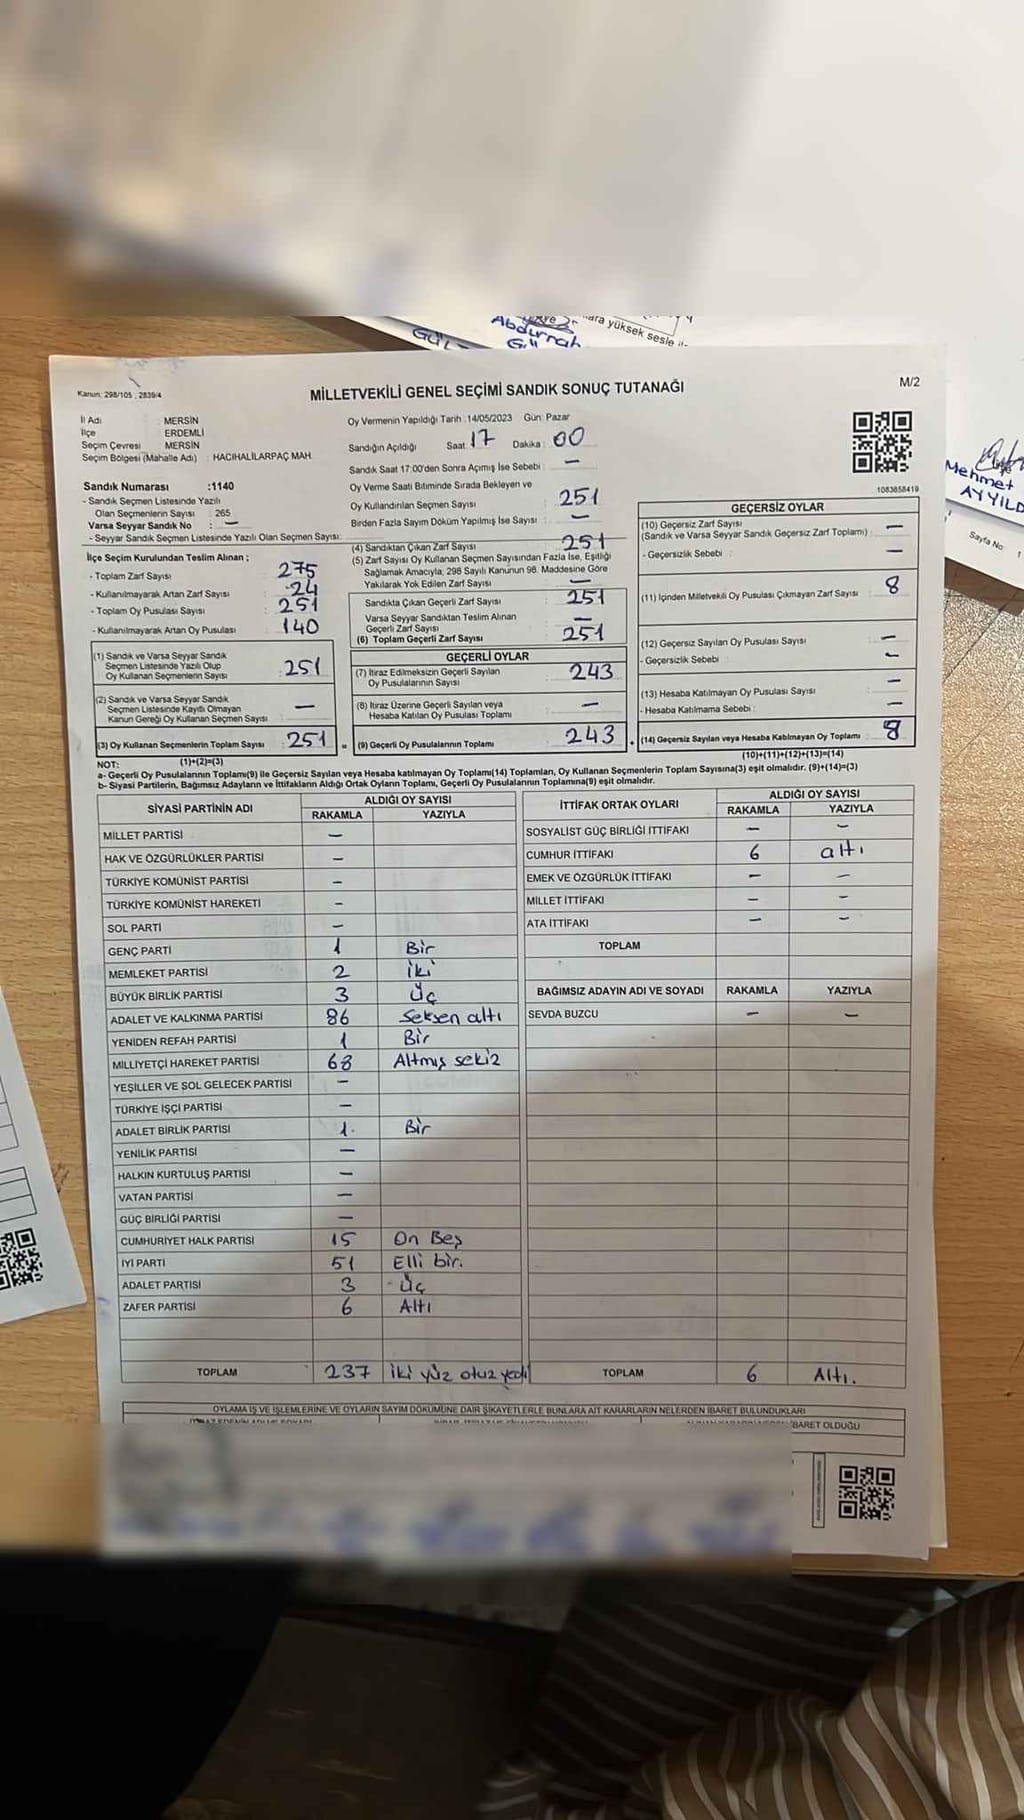 Abdurrah
GÜL
GÜ
ara yüksek sesle
Mehmet
AYYILD
Sayfa No 1
Kanun: 298/105 ; 2839/4
MİLLETVEKİLİ GENEL SEÇİMİ SANDIK SONUÇ TUTANAĞI
M/2
İl Adı : MERSİN
İlçe : ERDEMLİ
Seçim Çevresi : MERSİN
Seçim Bölgesi (Mahalle Adı) : HACIHALİLARPAÇ MAH.
Oy Vermenin Yapıldığı Tarih :14/05/2023 Gün: Pazar
Sandığın Açıldığı Saat : 17 Dakika : 00
Sandık Saat 17:00'den Sonra Açımış İse Sebebi : —
Sandık Numarası :1140
- Sandık Seçmen Listesinde Yazılı
Olan Seçmenlerin Sayısı : 265
Varsa Seyyar Sandık No : —
- Seyyar Sandık Seçmen Listesinde Yazılı Olan Seçmen Sayısı:
Oy Verme Saati Bitiminde Sırada Bekleyen ve
Oy Kullandırılan Seçmen Sayısı : 251
Birden Fazla Sayım Döküm Yapılmış İse Sayısı : —
1083858419
İlçe Seçim Kurulundan Teslim Alınan ;
- Toplam Zarf Sayısı : 275
- Kullanılmayarak Artan Zarf Sayısı : 24
- Toplam Oy Pusulası Sayısı : 251
- Kullanılmayarak Artan Oy Pusulası : 140
(1) Sandık ve Varsa Seyyar Sandık
Seçmen Listesinde Yazılı Olup
Oy Kullanan Seçmenlerin Sayısı : 251
(2) Sandık ve Varsa Seyyar Sandık
Seçmen Listesinde Kayıtlı Olmayan
Kanun Gereği Oy Kullanan Seçmen Sayısı : —
(3) Oy Kullanan Seçmenlerin Toplam Sayısı : 251 =
(4) Sandıktan Çıkan Zarf Sayısı : 251
(5) Zarf Sayısı Oy Kullanan Seçmen Sayısından Fazla İse, Eşitliği
Sağlamak Amacıyla, 298 Sayılı Kanunun 98. Maddesine Göre
Yakılarak Yok Edilen Zarf Sayısı : —
Sandıkta Çıkan Geçerli Zarf Sayısı : 251
Varsa Seyyar Sandıktan Teslim Alınan
Geçerli Zarf Sayısı : —
(6) Toplam Geçerli Zarf Sayısı : 251
GEÇERLİ OYLAR
(7) İtiraz Edilmeksizin Geçerli Sayılan
Oy Pusulalarının Sayısı : 243
(8) İtiraz Üzerine Geçerli Sayılan veya
Hesaba Katılan Oy Pusulası Toplamı : —
(9) Geçerli Oy Pusulalarının Toplamı : 243 +
GEÇERSİZ OYLAR
(10) Geçersiz Zarf Sayısı
(Sandık ve Varsa Seyyar Sandık Geçersiz Zarf Toplamı) : —
- Geçersizlik Sebebi : —
(11) İçinden Milletvekili Oy Pusulası Çıkmayan Zarf Sayısı : 8
(12) Geçersiz Sayılan Oy Pusulası Sayısı : —
- Geçersizlik Sebebi : —
(13) Hesaba Katılmayan Oy Pusulası Sayısı : —
- Hesaba Katılmama Sebebi : —
(14) Geçersiz Sayılan veya Hesaba Katılmayan Oy Toplamı : 8
NOT: (1)+(2)=(3) (10)+(11)+(12)+(13)=(14)
a- Geçerli Oy Pusulalarının Toplamı(9) ile Geçersiz Sayılan veya Hesaba katılmayan Oy Toplamı(14) Toplamları, Oy Kullanan Seçmenlerin Toplam Sayısına(3) eşit olmalıdır. (9)+(14)=(3)
b- Siyasi Partilerin, Bağımsız Adayların ve İttifakların Aldığı Ortak Oyların Toplamı, Geçerli Oy Pusulalarının Toplamına(9) eşit olmalıdır.
SİYASİ PARTİNİN ADI ALDIĞI OY SAYISI
RAKAMLA YAZIYLA
MİLLET PARTİSİ —
HAK VE ÖZGÜRLÜKLER PARTİSİ —
TÜRKİYE KOMÜNİST PARTİSİ —
TÜRKİYE KOMÜNİST HAREKETİ —
SOL PARTİ —
GENÇ PARTİ 1 Bir
MEMLEKET PARTİSİ 2 iki
BÜYÜK BİRLİK PARTİSİ 3 Üç
ADALET VE KALKINMA PARTİSİ 86 Seksen altı
YENİDEN REFAH PARTİSİ 1 Bir
MİLLİYETÇİ HAREKET PARTİSİ 68 Altmış sekiz
YEŞİLLER VE SOL GELECEK PARTİSİ —
TÜRKİYE İŞÇİ PARTİSİ —
ADALET BİRLİK PARTİSİ 1. Bir
YENİLİK PARTİSİ —
HALKIN KURTULUŞ PARTİSİ —
VATAN PARTİSİ —
GÜÇ BİRLİĞİ PARTİSİ —
CUMHURİYET HALK PARTİSİ 15 On Beş
İYİ PARTİ 51 Elli bir.
ADALET PARTİSİ 3 Üç
ZAFER PARTİSİ 6 Altı
TOPLAM 237 iki yüz otuz yedi
İTTİFAK ORTAK OYLARI ALDIĞI OY SAYISI
RAKAMLA YAZIYLA
SOSYALİST GÜÇ BİRLİĞİ İTTİFAKI — —
CUMHUR İTTİFAKI 6 altı
EMEK VE ÖZGÜRLÜK İTTİFAKI — —
MİLLET İTTİFAKI — —
ATA İTTİFAKI — —
TOPLAM
BAĞIMSIZ ADAYIN ADI VE SOYADI RAKAMLA YAZIYLA
SEVDA BUZCU — —
TOPLAM 6 Altı.
OYLAMA İŞ VE İŞLEMLERİNE VE OYLARIN SAYIM DÖKÜMÜNE DAİR ŞİKAYETLERLE BUNLARA AİT KARARLARIN NELERDEN İBARET BULUNDUKLARI
İBARET OLDUĞU